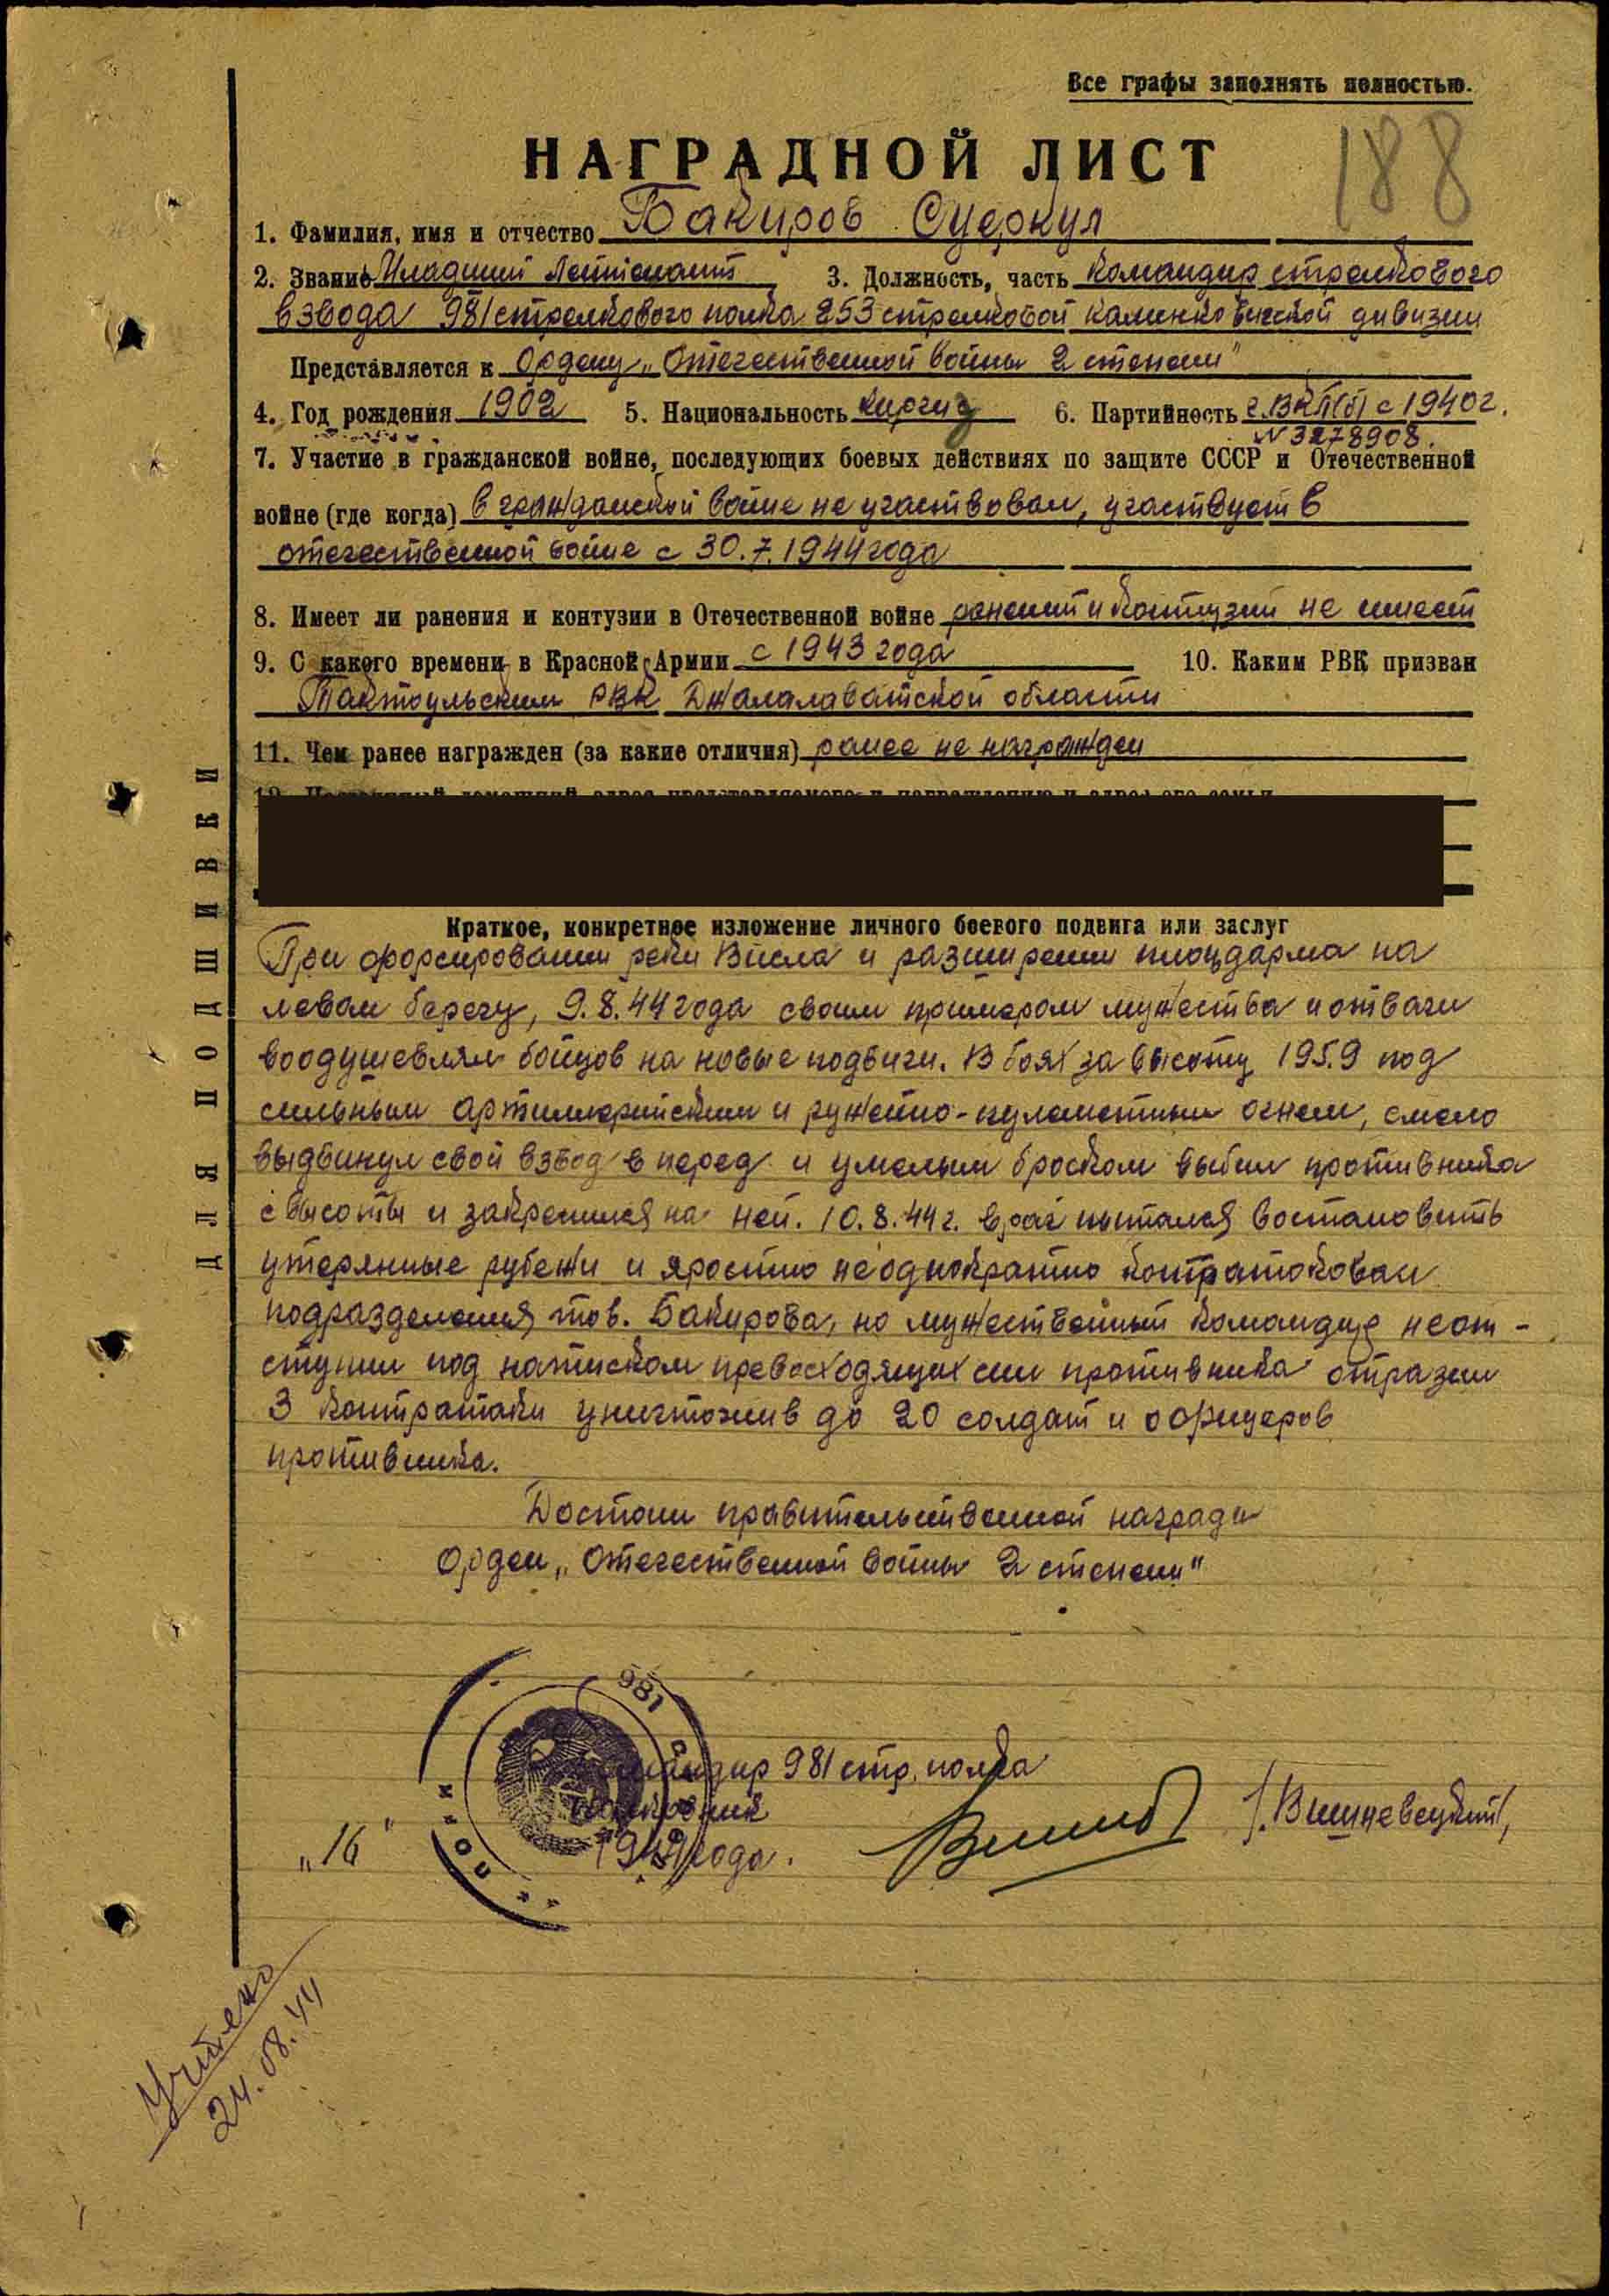 Все графы заполнять полностью.
188
НАГРАДНОЙ ЛИСТ
1. Фамилия, имя и отчество Бакиров Суеркул
2. Звание Младший Лейтенант 3. Должность, часть командир стрелкового
взвода 981 стрелкового полка 253 стрелковой каминковической дивизии
Представляется к Ордену „Отечественной войны 2 степени"
4. Год рождения 1902 5. Национальность киргиз 6. Партийность ч. ВКП(б) с 1940 г.
N 3278908.
7. Участие в гражданской войне, последующих боевых действиях по защите СССР и Отечественной
войне (где когда) в гражданской войне не участвовал, участвует в
отечественной войне с 30.7.1944 года
8. Имеет ли ранения и контузии в Отечественной войне ранений и контузий не имеет
9. С какого времени в Красной Армии с 1943 года 10. Каким РВК призван
Токтоульским РВК Джалалаватской области
11. Чем ранее награжден (за какие отличия) ранее не награжден
12. Постоянный домашний адрес представляемого к награждению и адрес его семьи
Краткое, конкретное изложение личного боевого подвига или заслуг
При форсировании реки Висла и разширении плоцдарма на
левом берегу, 9.8.44 года своим примером мужества и отваги
воодушевлял бойцов на новые подвиги. В боях за высоту 195.9 под
сильным артиллерийским и ружейно-пулеметным огнем, смело
выдвинул свой взвод в перед и умелым броском выбил противника
с высоты и закрепился на ней. 10.8.44 г. враг пытался востановить
утерянные рубежи и яростно неоднократно контратоковал
подразделения тов. Бакирова, но мужественный командир неот-
ступил под натиском превосходящих сил противника отразил
3 контратаки уничтожив до 20 солдат и оофицеров
противника.
Достоин правительственной награды
Орден „Отечественной войны 2 степени"
Командир 981 стр. полка
полковник
/Вишневецкий/
„16" 1944 года.
981
ПОЛК
Учтено
24.08.44
ДЛЯ ПОДШИВКИ